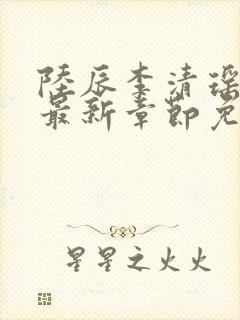 陸辰李清瑶
最新章節免
星星之火火